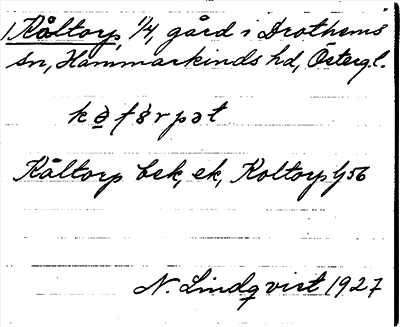 1 Kåltorp, 1/4, gård i Drothems
sn, Hammarkinds hd, Östergl.
Kåltorp bek, ek, Koltorp
N. Lindqvist 1927